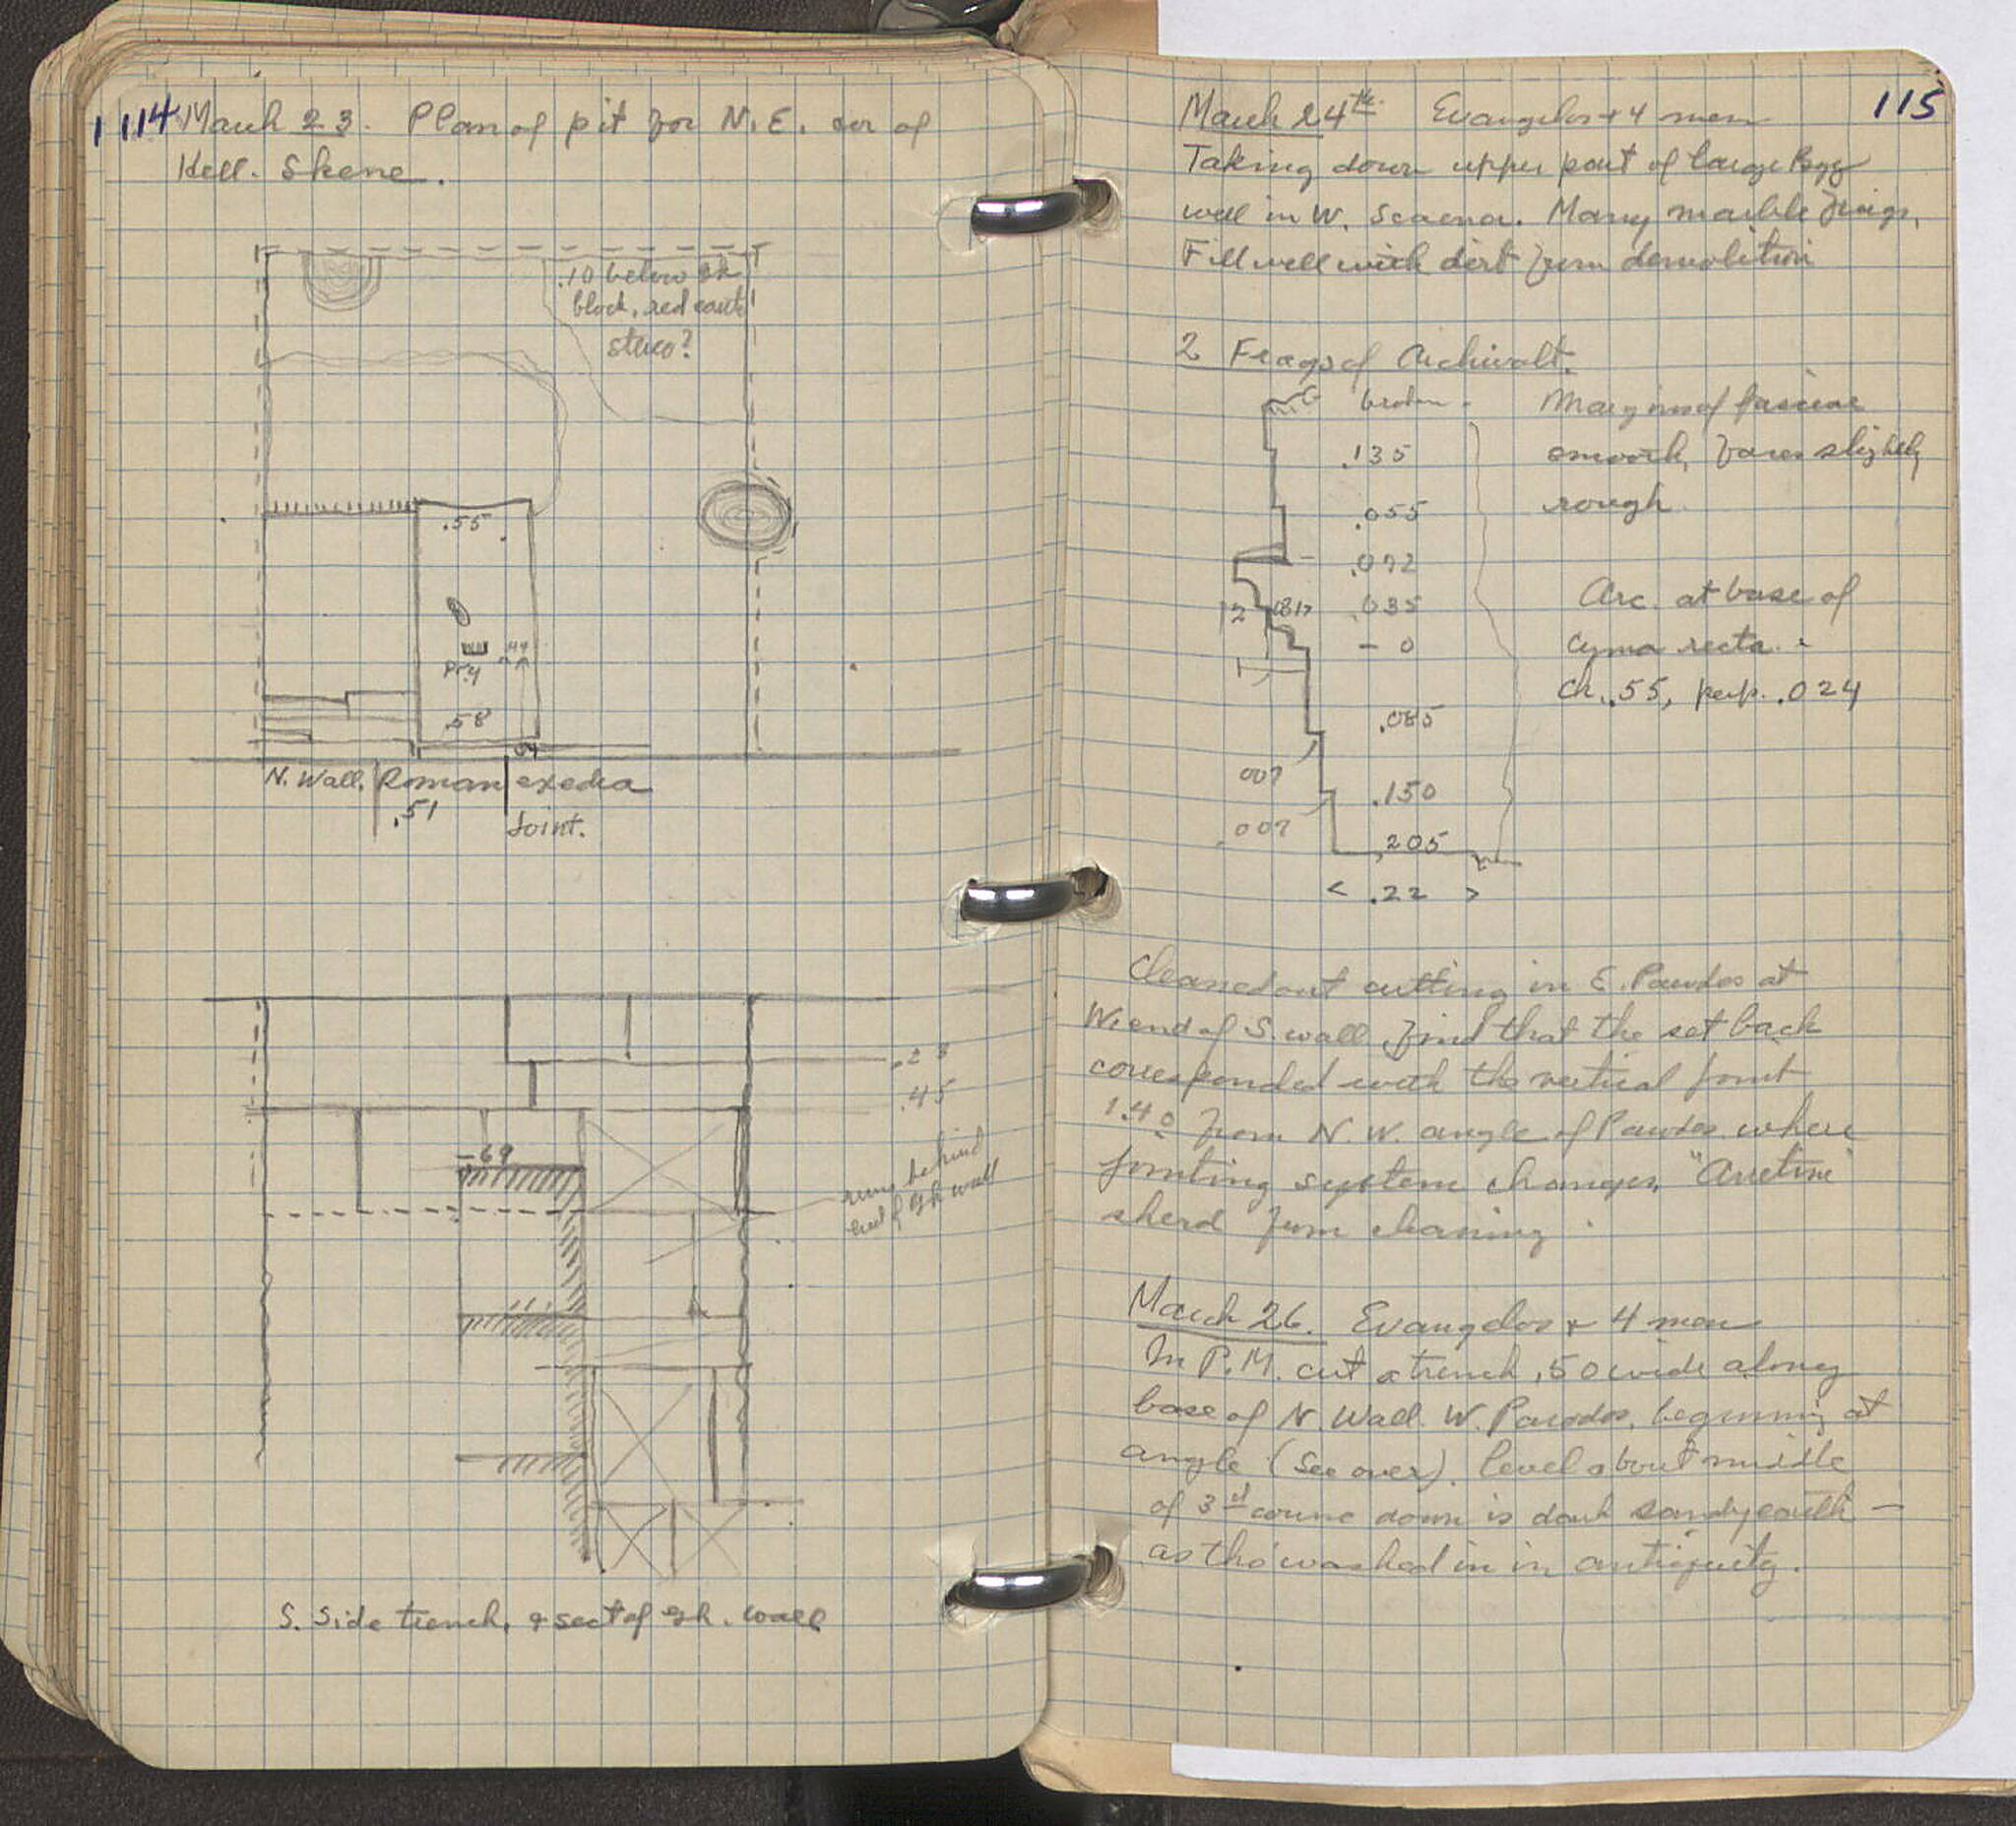 114 March 23. Plan of pit for N.E. cor of
Hell. Skene.
.10 below
block, red earth
stuco?
.55
.44
.58
.04
N. Wall, Roman exedra
.51
Joint.
.23
.45
-.69
runs behind
end of Gk wall
S. Side trench, & sect of gk. wall
115
March 24th Evangelos + 4 men
Taking down upper part of large Byz
wall in W. Scaena. Many marble frags.
Fill well with dirt from demolition
2 Frags of Archivolt.
broken -
.135
.055
.072
.035
- 0
.085
.007
.150
.007
.205
< .22 >
Margins of fasciae
smooth, faces slightly
rough.
Arc. at base of
Cyma recta :
Ch. .55, perp. .024
Cleaned out cutting in E. Parodos at
W. end of S. wall, find that the set back
corresponded with the vertical joint
1.40 from N.W. angle of Parodos where
jointing system changes. "Arretine"
sherd from cleaning.
March 26. Evangelos + 4 men
In P.M. cut a trench .50 wide along
base of N. Wall W. Parodos, beginning at
angle (See over). Level about middle
of 3rd course down is dark sandy earth -
as tho' washed in in antiquity.